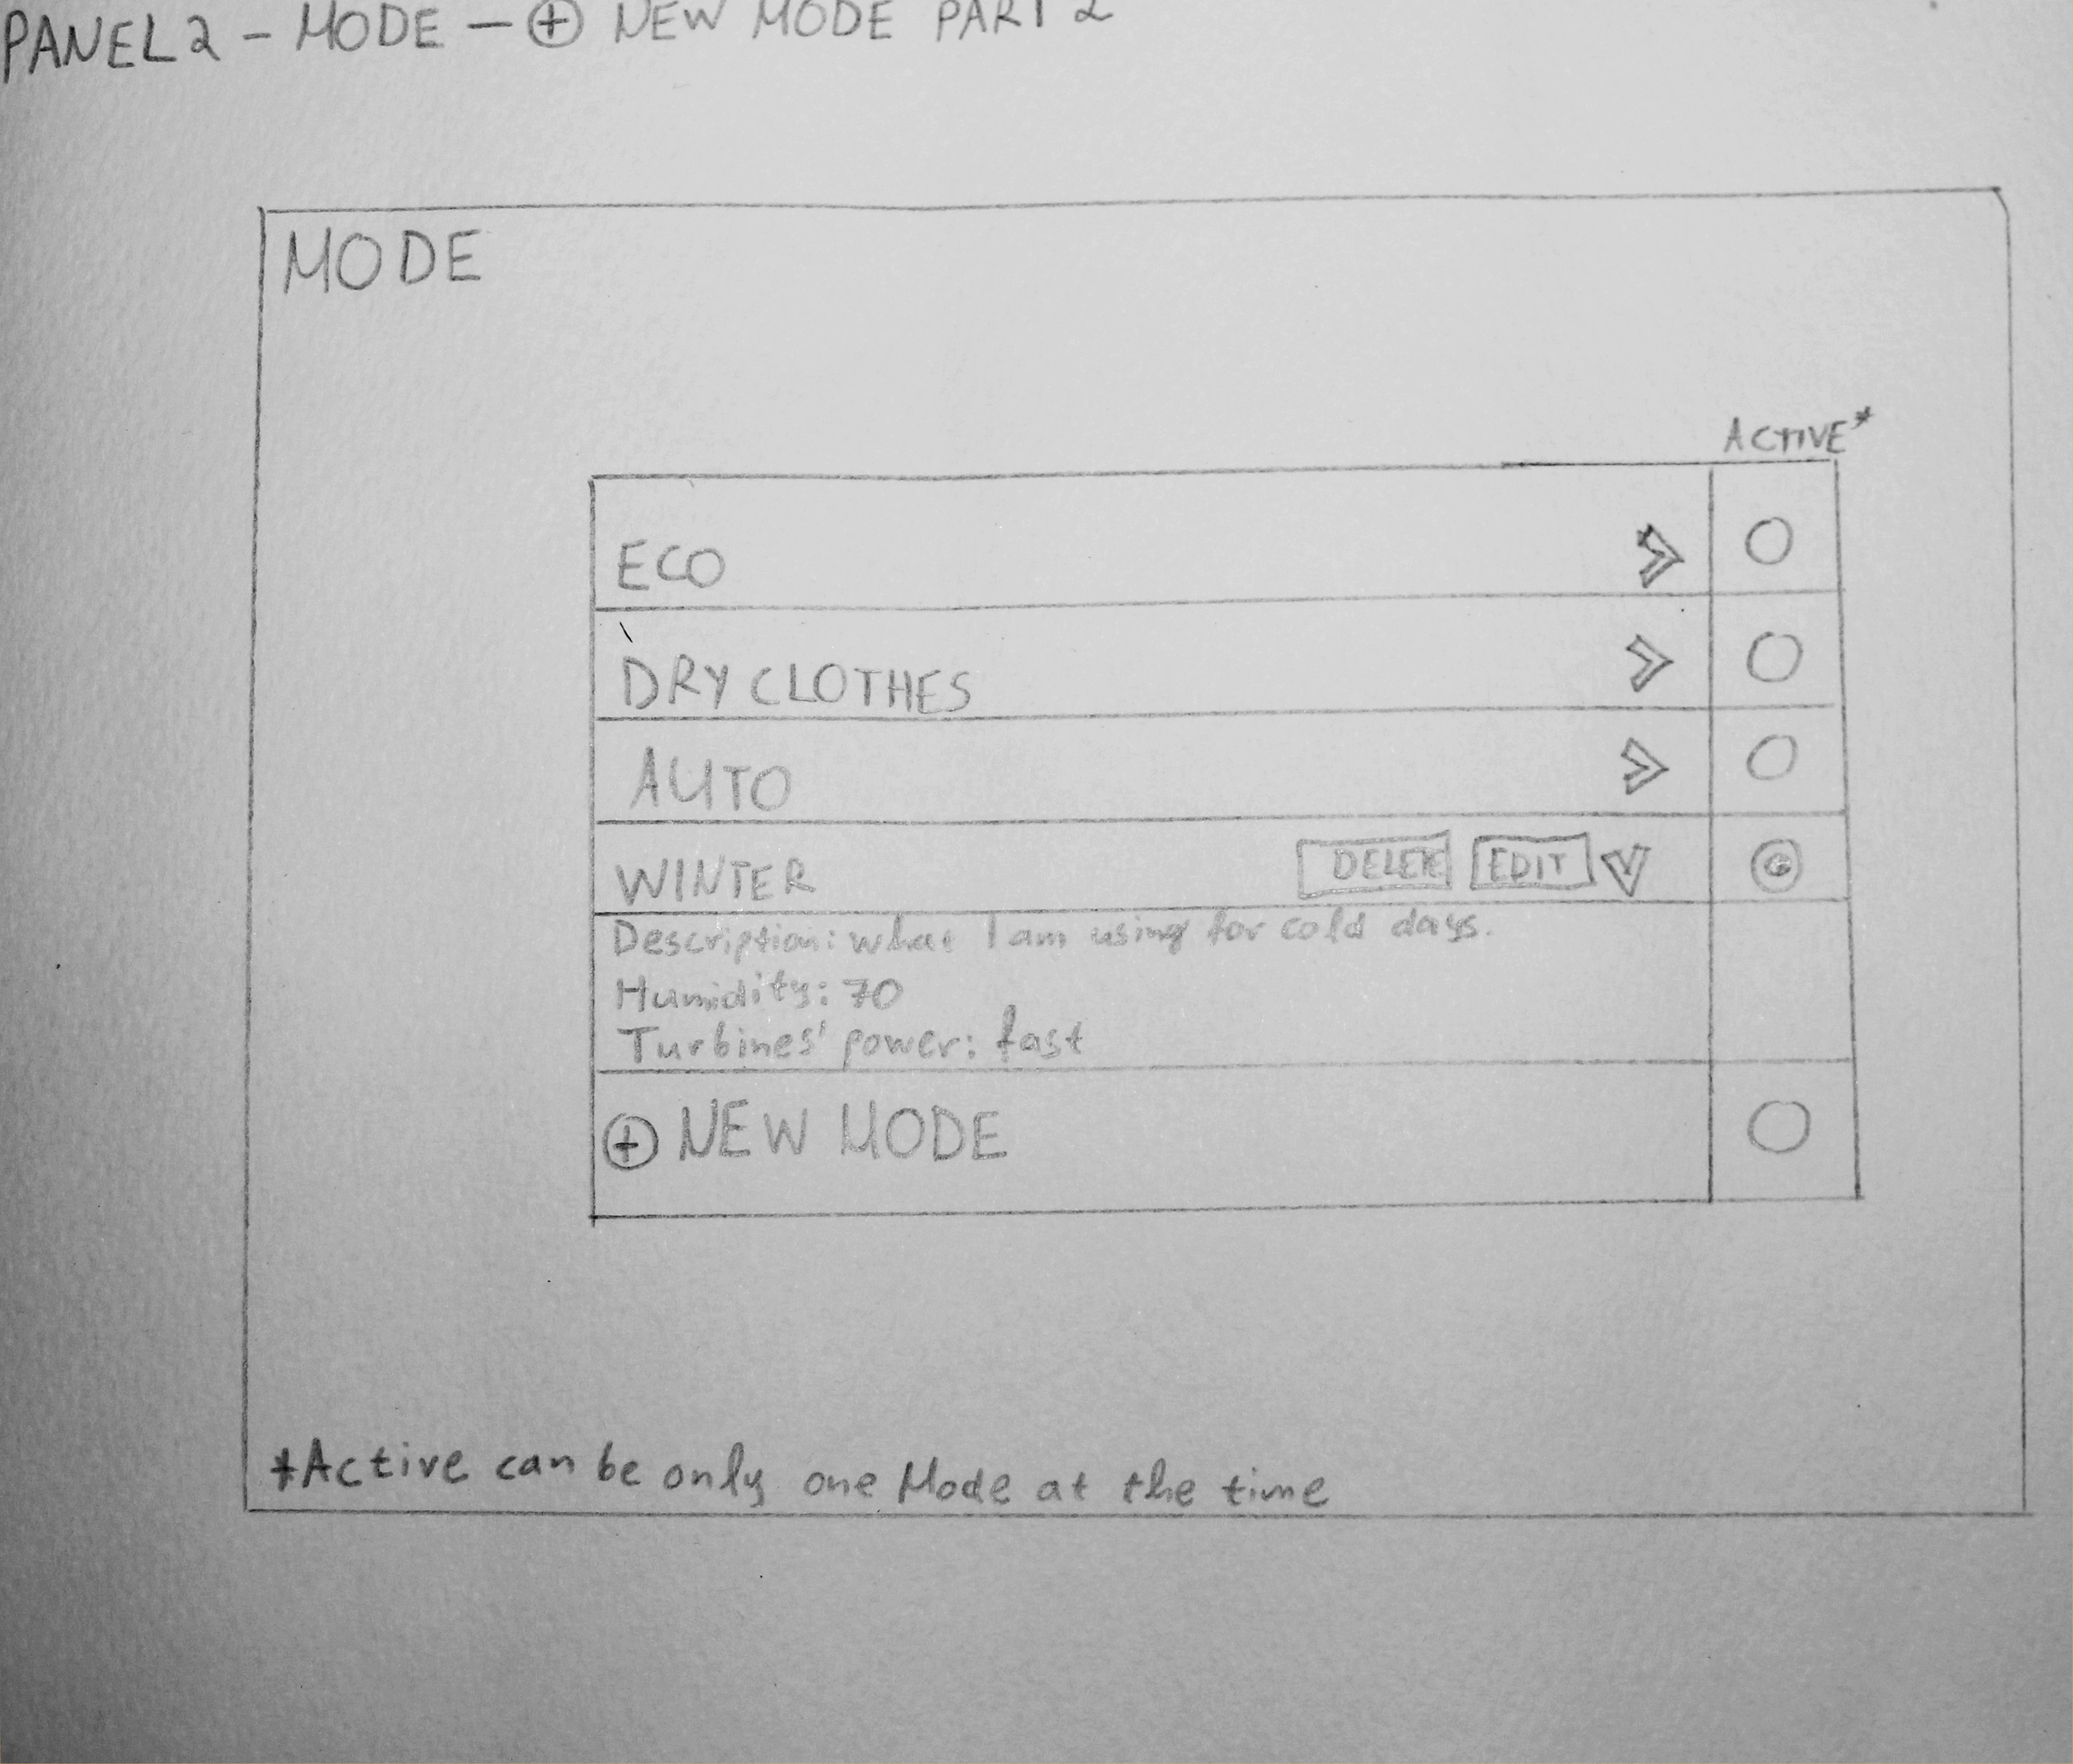 PANEL 2 - MODE - + NEW MODE PART 2
MODE
ACTIVE*
ECO
DRY CLOTHES
AUTO
WINTER DELETE EDIT
Description: what I am using for cold days.
Humidity: 70
Turbines' power: fast
+ NEW MODE
*Active can be only one Mode at the time